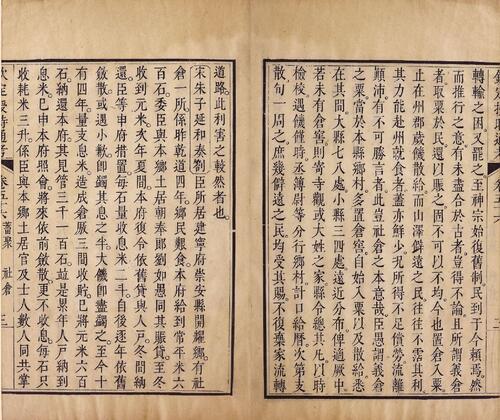 轉輸之因又罷之至神宗始復舊制民到于今頼焉然
而推行之意有未盡合於古者豈得不論且所謂義倉
者取粟於民還以賑之固不可以不均今也置倉入粟
止在州郡歲饑散給而山澤僻遠之民往往不霑其利
其力能赴州就食者蓋亦鮮少况所得不足償勞流離
顛沛有不可勝言者此豈社倉之本意哉臣愚謂義倉
之粟當於本縣鄉村多置倉窖自始入粟以及散給悉
在其間大縣七八處小縣三四處遠近分布俾適厥中
若未有倉窖則寄寺觀或大姓之家縣令總其凡以時
檢校遇饑饉時丞簿尉等分行鄉村計口給曆次第支
散旬一周之庶幾僻遠之民均受其賜不復棄家流轉
道路此利害之較然者也
宋朱子延和奏劄臣所居建寧府崇安縣開耀鄉有社
倉一所係昨乾道四年鄉民艱食本府給到常平米六
百石委臣與本鄉土居朝奉郎劉如愚同其賑貸至冬
收到元米次年夏間本府復令依舊貸與人戶冬間納
還臣等申府措置每石量收息米二斗自後逐年依舊
斂散或遇小歉即蠲其息之半大饑即盡蠲之至今十
有四年量支息米造成倉廒三間收貯已將元米六百
石納還本府其見管三千一百石並是累年人戶納到
息米已申本府照會將來依前斂散更不收息每石只
收耗米三升係臣與本鄉土居官及士人數人同共掌
欽定授時通考 卷五十六 蓄聚 社倉 三